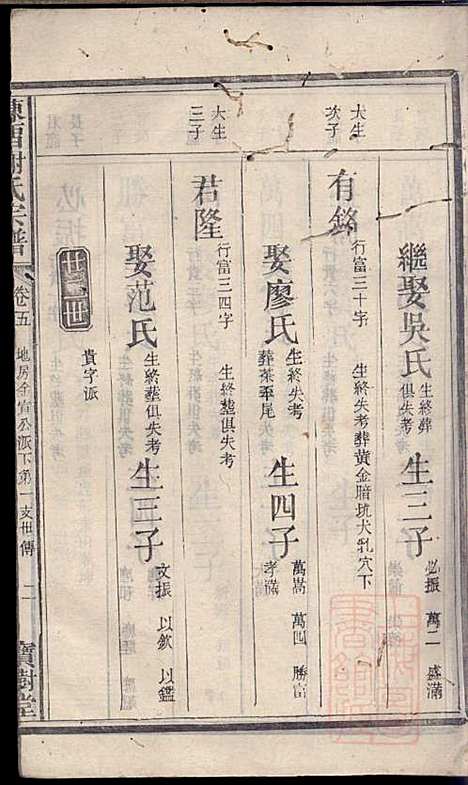 繼娶吳氏 生終葬俱失考 生三子 必振 萬二 盛滿
大生次子
有銘 行富三十字 生終失考葬黃金暗坑犬乳穴下
娶廖氏 生終失考葬茶平尾 生四子 萬嵩 萬四 勝富 孝滿
大生三子
君隆 行富三四字 生終塟俱失考
娶范氏 生終塟俱失考 生三子 文振 以欽 以鑑
廿三世 貴字派
謝氏宗譜 卷五 地房 公派下第一支世傳 二 寶樹堂